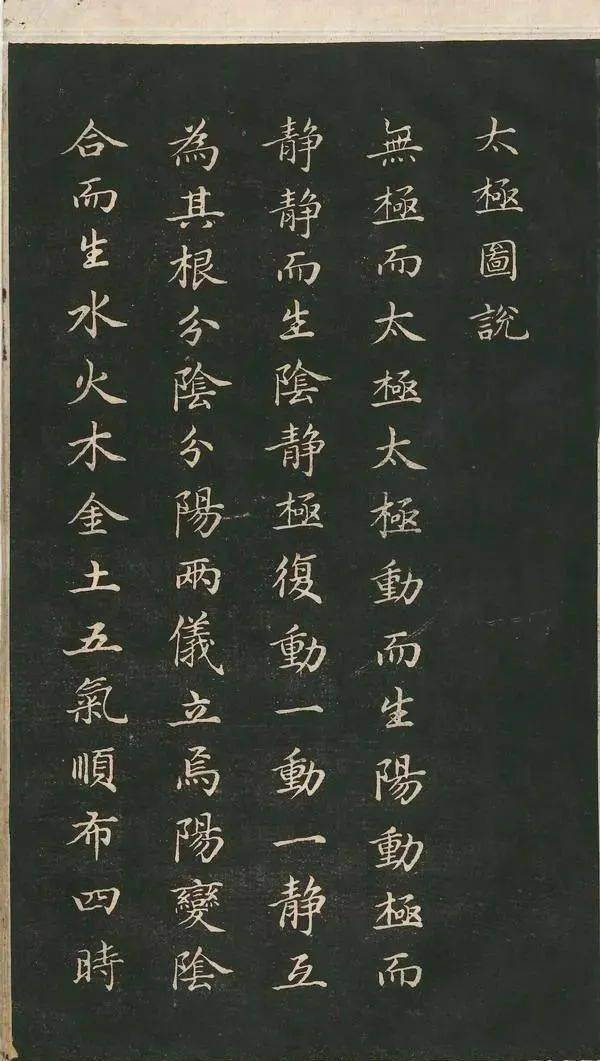 太極圖說
無極而太極太極動而生陽動極而
静静而生陰静極復動一動一静互
為其根分陰分陽兩儀立焉陽變陰
合而生水火木金土五氣順布四時